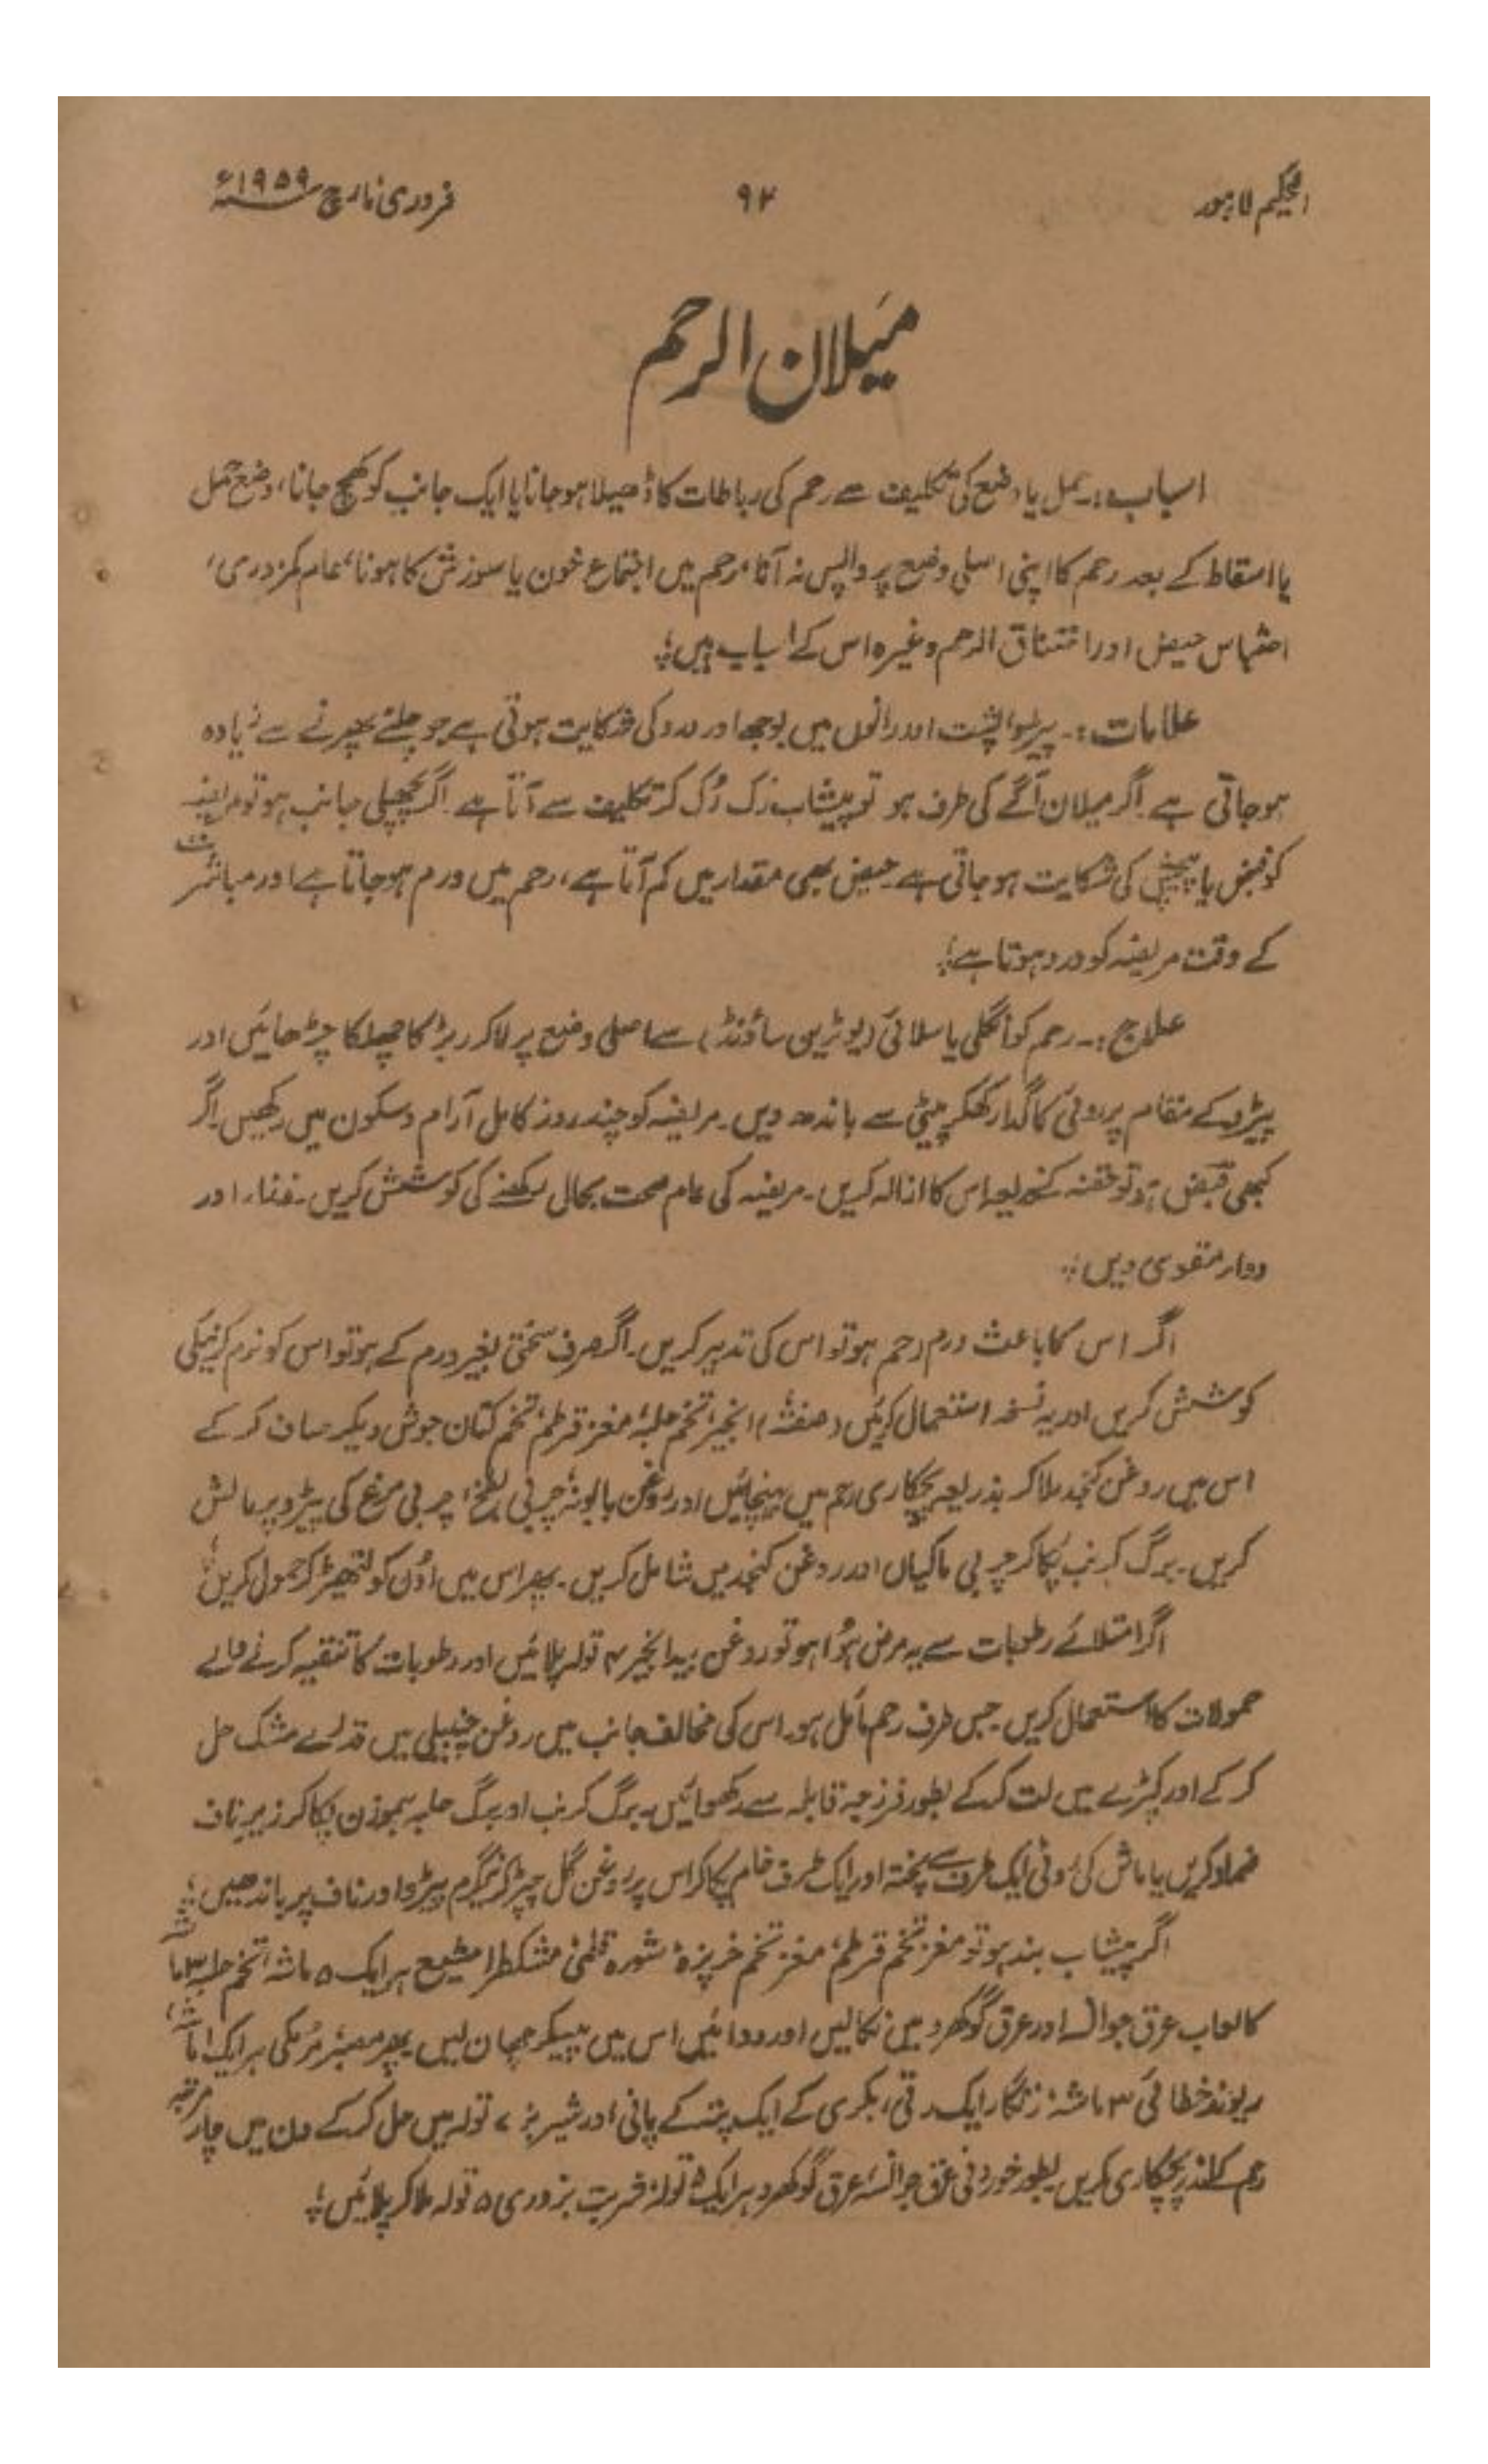 الحکیم لاہور
۹۲
فروری مارچ ۱۹۵۹ء
میلان الرحم
اسباب:۔ حمل یا وضع کی تکلیف سے رحم کی رباطات کا ڈھیلا ہوجانا یا ایک جانب کو کھچ جانا، وضع حمل
یا اسقاط کے بعد رحم کا اپنی اصلی وضع پر واپس نہ آنا، رحم میں اجتماع خون یا سوزش کا ہونا، عام کمزوری،
احتباس حیض اور اختناق الرحم وغیرہ اس کے اسباب ہیں؛
علامات:۔ پیڑو، پشت اور رانوں میں بوجھ اور درد کی شکایت ہوتی ہے جو چلنے پھرنے سے زیادہ
ہوجاتی ہے۔ اگر میلان آگے کی طرف ہو تو پیشاب رُک رُک کر تکلیف سے آتا ہے۔ اگر پچھلی جانب ہو تو مریضہ
کو قبض یا پیچش کی شکایت ہوجاتی ہے۔ حیض بھی مقدار میں کم آتا ہے، رحم میں ورم ہوجاتا ہے اور مباشرت
کے وقت مریضہ کو درد ہوتا ہے؛
علاج:۔ رحم کو انگلی یا سلائی (یوٹرین ساؤنڈ) سے اصلی وضع پر لاکر ربڑ کا چھلکا چڑھائیں اور
پیڑو کے مقام پر روئی کا گدا رکھکر پیٹی سے باندھ دیں۔ مریضہ کو چند روز کامل آرام و سکون میں رکھیں۔ اگر
کبھی قبض ہو تو حقنہ کے ذریعہ اس کا ازالہ کریں۔ مریضہ کی عام صحت بحال رکھنے کی کوشش کریں۔ غذاء اور
دواء مقوی دیں؛
اگر اس کا باعث ورم رحم ہو تو اس کی تدبیر کریں۔ اگر صرف سختی بغیر ورم کے ہو تو اس کو نرم کرنیکی
کوشش کریں اور یہ نسخہ استعمال کریں (صفتہٗ) انجیر، تخم حلبہ، مغز قرطم، تخم کتان جوش دیکر صاف کر کے
اس میں روغن کنجد ملاکر بذریعہ پچکاری رحم میں پہنچائیں اور روغن بابونہ، چربی بطخ، چربی مرغ کی پیڑو پر مالش
کریں۔ برگ کرنب پکاکر چربی ماکیاں اور روغن کنجد میں شامل کریں۔ پھر اس میں اُون کو لتھیڑ کر حمول کریں؛
اگر امتلائے رطوبات سے یہ مرض ہُوا ہو تو روغن بیدانجیر ۴ تولہ پلائیں اور رطوبات کا تنقیہ کرنے والے
حمولات کا استعمال کریں۔ جس طرف رحم مائل ہو، اس کی مخالف جانب میں روغن چنبیلی میں قدرے مشک حل
کر کے اور کپڑے میں لت کرکے بطور فرزجہ قابلہ سے رکھوائیں۔ برگ کرنب اور برگ حلبہ ہموزن پکاکر زیر ناف
ضماد کریں یا ماش کی روٹی ایک طرف سے پختہ اور ایک طرف خام پکاکر اس پر روغن گل چپڑ کر نیم گرم پیڑو اور ناف پر باندھیں؛
اگر پیشاب بند ہو تو مغز تخم قرطم، مغز تخم خرپزہ، شورہ قلمی، مشکطرا مشیع ہر ایک ۵ ماشہ، تخم حلبہ ۳ ماشہ
کا لعاب عرق جوانسہ اور عرق گوکھرو میں نکالیں اور دوائیں اس میں پیسکر چھان لیں۔ پھر صبر، مُرمکی ہر ایک ۱ ماشہ،
ریوند خطائی ۳ ماشہ، زنگار ایک رتی، بکری کے ایک پتہ کے پانی اور شیر بز ۷ تولہ میں حل کر کے دن میں چار مرتبہ
رحم کے اندر پچکاری کریں۔ بطور خوردنی عرق جوانسہ، عرق گوکھرو ہر ایک ۵ تولہ، شربت بزوری ۵ تولہ ملاکر پلائیں؛